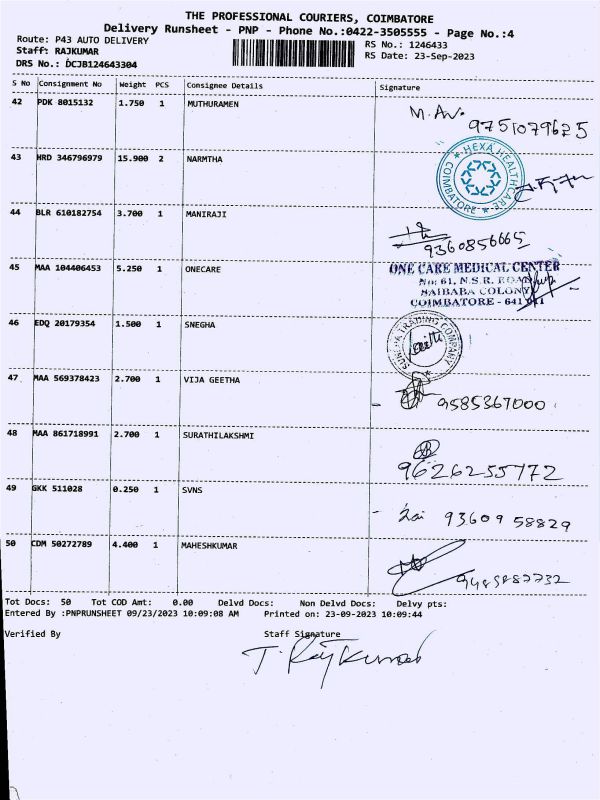 THE PROFESSIONAL COURIERS, COIMBATORE
Delivery Runsheet - PNP - Phone No.:0422-3505555 - Page No.:4
Route: P43 AUTO DELIVERY
RS No.: 1246433
Staff: RAJKUMAR
RS Date: 23-Sep-2023
DRS No.: DCJB124643304
S No Consignment No Weight PCS Consignee Details Signature
42 PDK 8015132 1.750 1 MUTHURAMEN
9751079625
43 HRD 346796979 15.900 2 NARMTHA
HEXA HEALTHCARE COIMBATORE
44 BLR 610182754 3.700 1 MANIRAJI
9360856665
45 MAA 104406453 5.250 1 ONECARE
ONE CARE MEDICAL CENTER
No: 61, N.S.R. ROAD
SAIBABA COLONY
COIMBATORE - 641 011
46 EDQ 20179354 1.500 1 SNEGHA
TRADING COMPANY
47 MAA 569378423 2.700 1 VIJA GEETHA
9585367000
48 MAA 861718991 2.700 1 SURATHILAKSHMI
9626255772
49 GKK 511028 0.250 1 SVNS
9360958829
50 CDM 50272789 4.400 1 MAHESHKUMAR
Tot Docs: 50 Tot COD Amt: 0.00 Delvd Docs: Non Delvd Docs: Delvy pts:
Entered By :PNPRUNSHEET 09/23/2023 10:09:08 AM Printed on: 23-09-2023 10:09:44
Verified By Staff Signature
T. Rajkumar